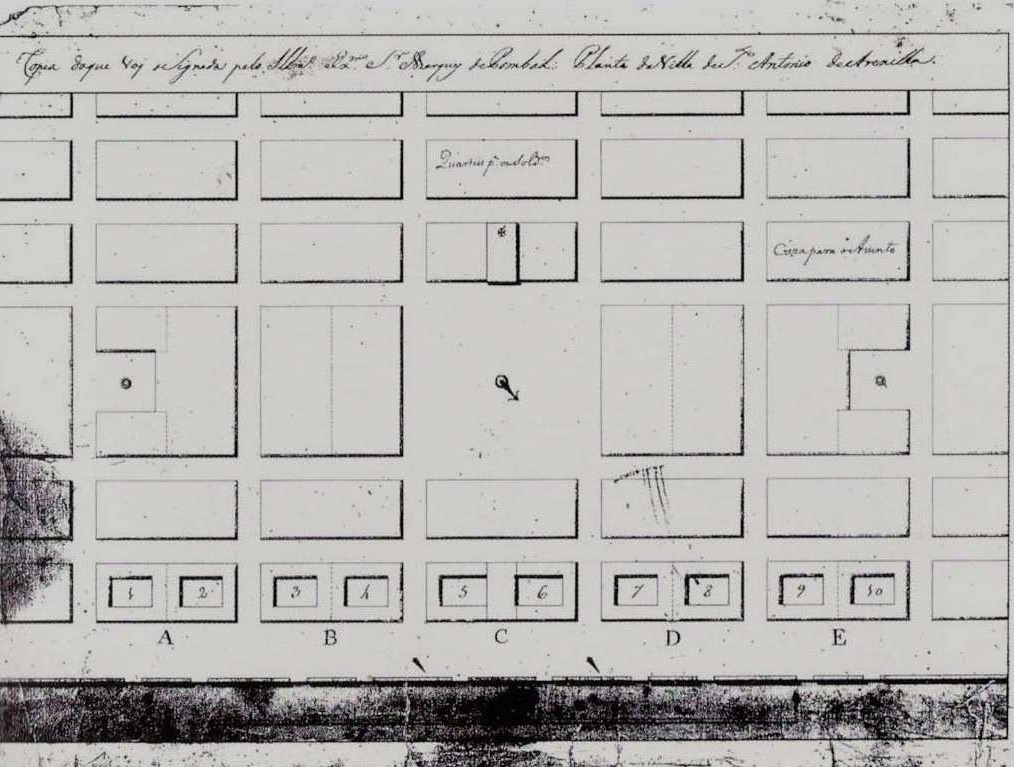 Copia doque Voj asignada pelo Illmo. Exmo. Sr. Marquez de Pombal. Planta da Villa de Sto. Antonio de Arenilla.
Quarteis pa. os Soldos
Caza para o Asunto
1 2 3 4 5 6 7 8 9 10
A B C D E